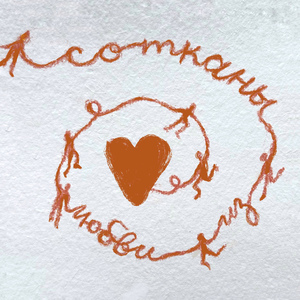 сотканы из любви